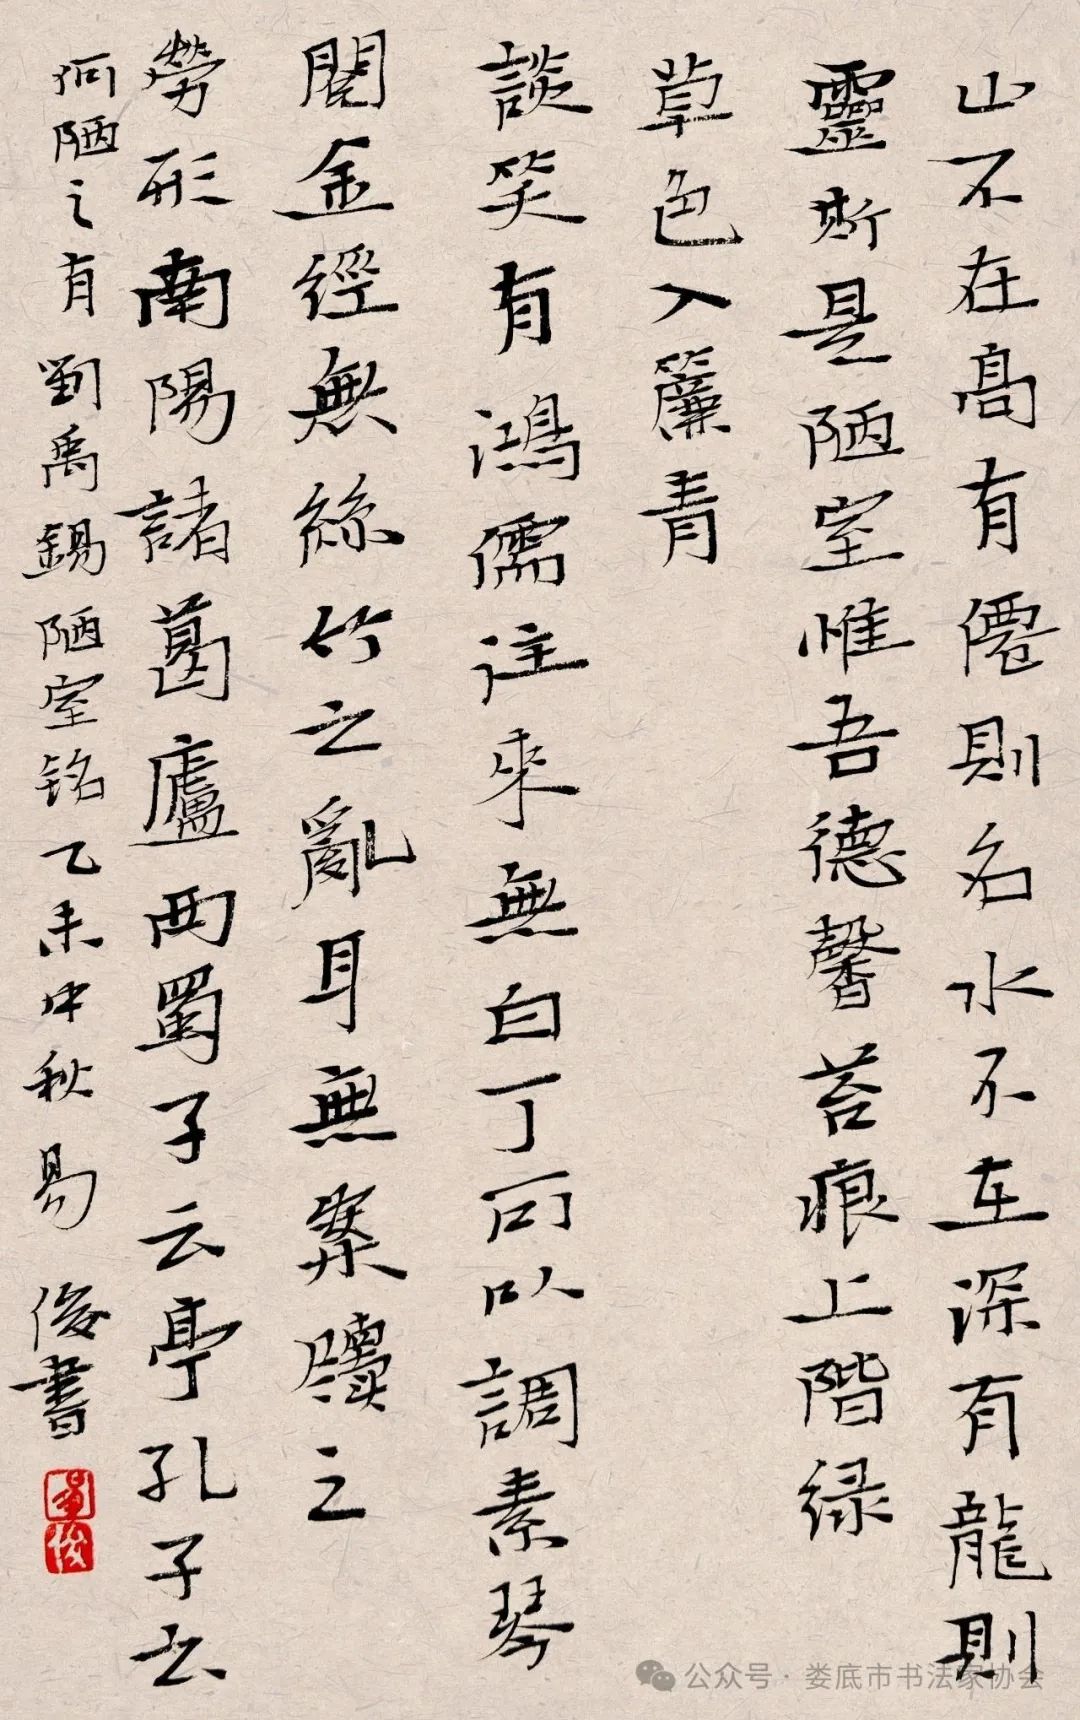 山不在高有僊則名水不在深有龍則
靈斯是陋室惟吾德馨苔痕上階緑
草色入簾青
談笑有鴻儒往來無白丁可以調素琴
閱金經無絲竹之亂耳無案牘之
勞形南陽諸葛廬西蜀子云亭孔子云
何陋之有 劉禹錫陋室铭乙未中秋易俊書
易俊
公众号·娄底市书法家协会